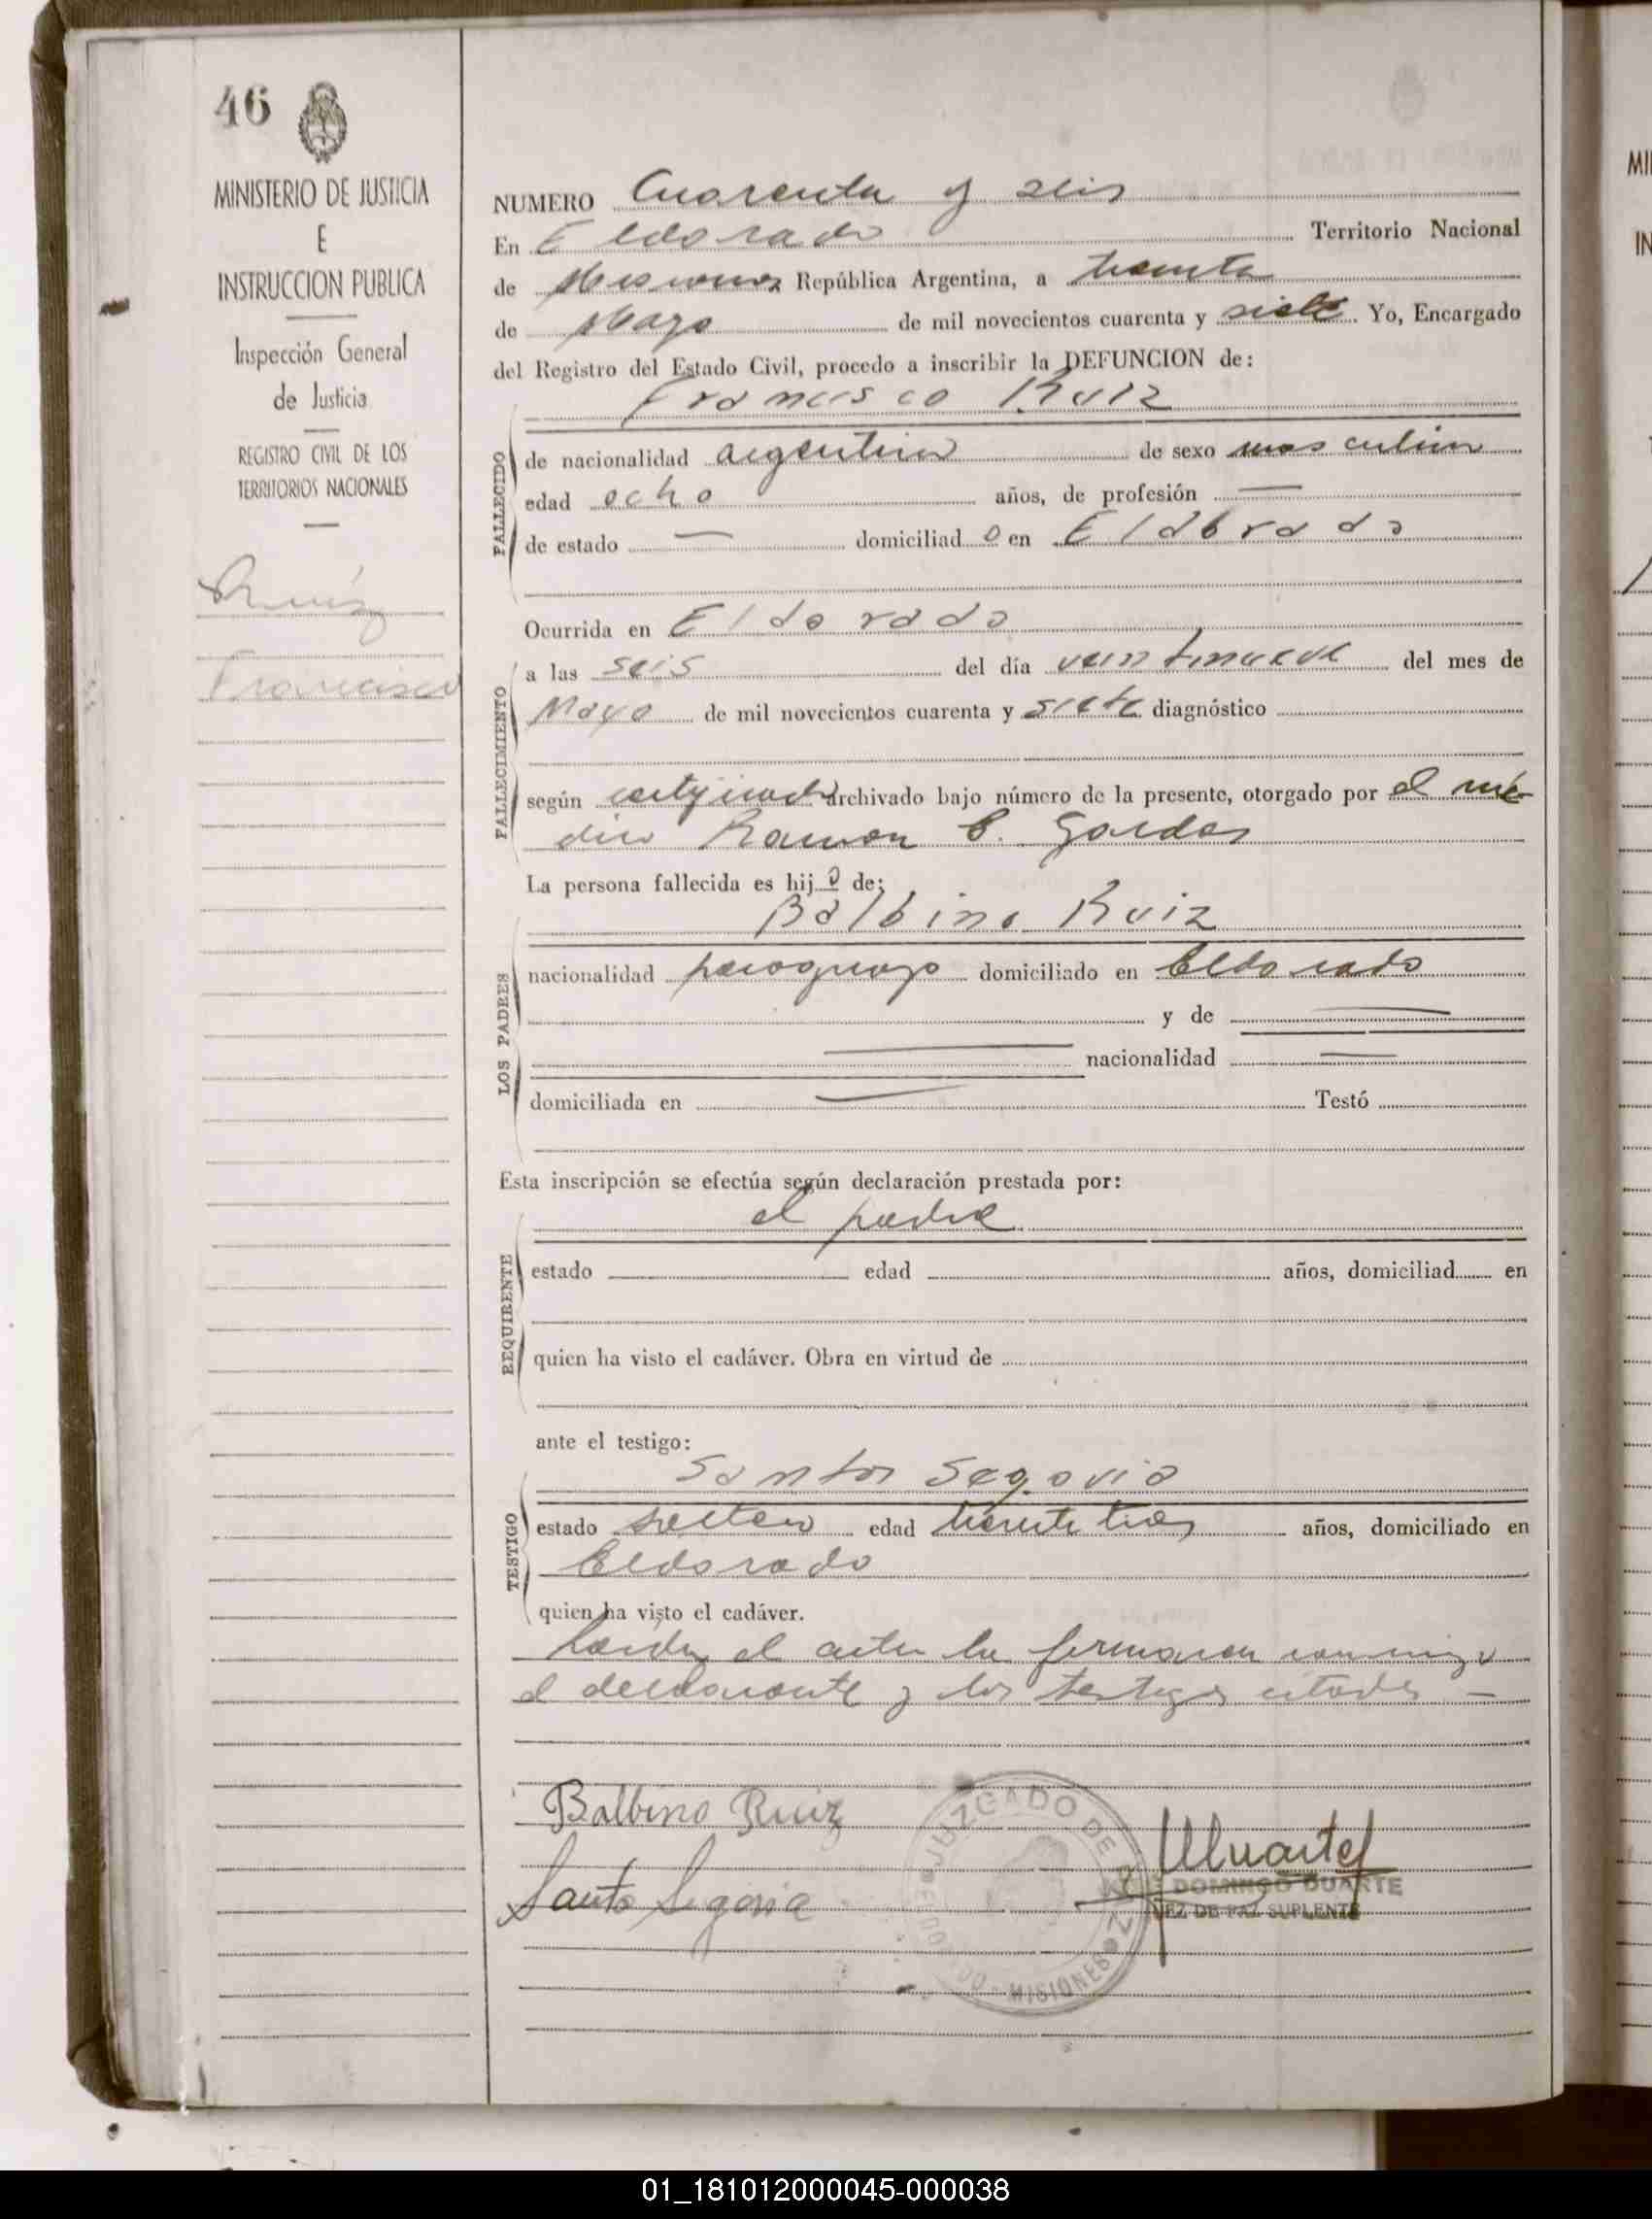 46
MINISTERIO DE JUSTICIA
E
INSTRUCCION PUBLICA
Inspección General
de Justicia
REGISTRO CIVIL DE LOS
TERRITORIOS NACIONALES
Ruíz
Francisco
NUMERO Cuarenta y seis
En Eldorado Territorio Nacional
de Misiones República Argentina, a treinta
de Mayo de mil novecientos cuarenta y siete. Yo, Encargado
del Registro del Estado Civil, procedo a inscribir la DEFUNCION de:
Francisco Ruiz
FALLECIDO
de nacionalidad argentino de sexo masculino
edad ocho años, de profesión —
de estado — domiciliad o en Eldorado
FALLECIMIENTO
Ocurrida en Eldorado
a las seis del día veintinueve del mes de
Mayo de mil novecientos cuarenta y siete diagnóstico
según certificado archivado bajo número de la presente, otorgado por el mé-
dico Ramon C.
LOS PADRES
La persona fallecida es hij o de:
Balbino Ruiz
nacionalidad paraguayo domiciliado en Eldorado
y de —
— nacionalidad —
domiciliada en — Testó
Esta inscripción se efectúa según declaración prestada por:
el padre
REQUIRENTE
estado edad años, domiciliad en
quien ha visto el cadáver. Obra en virtud de
ante el testigo:
Santos Segovia
TESTIGO
estado soltero edad treinta tres años, domiciliado en
Eldorado
quien ha visto el cadáver.
Leída el acta la firmaron conmigo
el declarante y los testigos citados —
Balbino Ruiz
Santo Segovia
JUZGADO DE PAZ
ELDORADO - MISIONES
DOMINGO DUARTE
JUEZ DE PAZ SUPLENTE
01_181012000045-000038